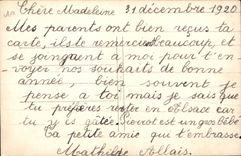 Chère Madeleine 31 décembre 1920
Mes parents ont bien reçus ta
carte, ils te remercie beaucoup, et
se joignent a moi pour t'en-
voyer nos souhaits de bonne
année, bien souvent je
pense a toi mais je sais que
tu préfères rester en Alsace car
tu y es gâtée. Pierrot est un gros Bébé
Ta petite amie qui t'embrasse.
Mathilde Allais.